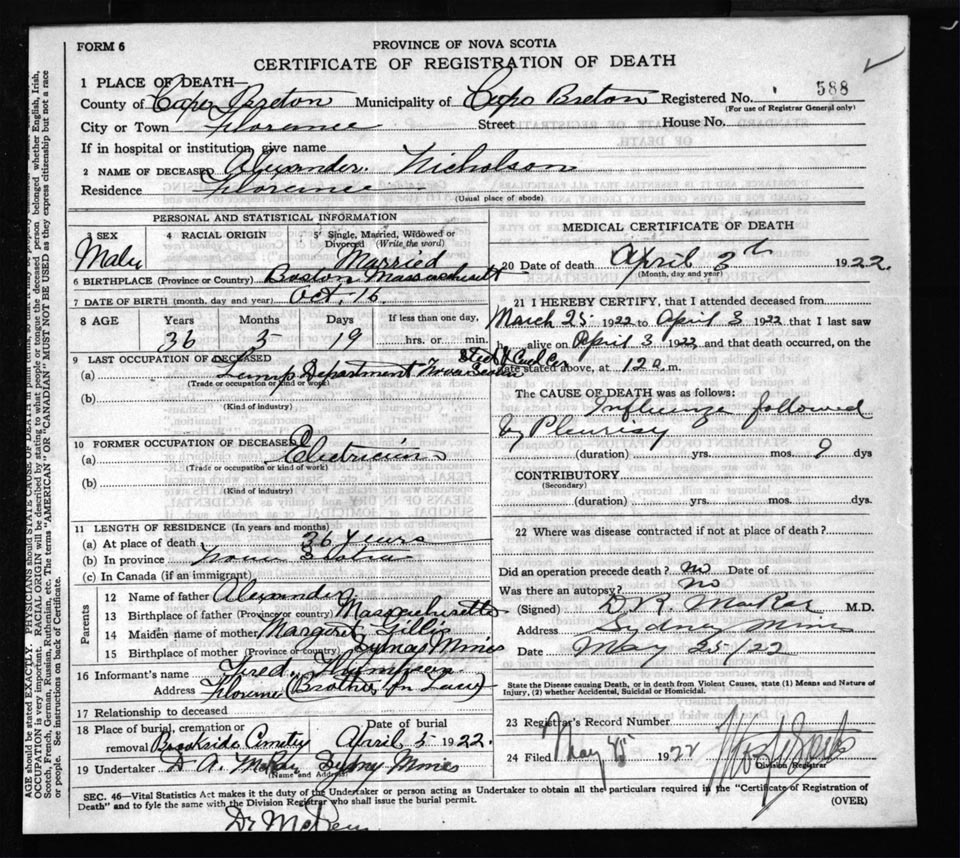 FORM 6
PROVINCE OF NOVA SCOTIA
CERTIFICATE OF REGISTRATION OF DEATH
1 PLACE OF DEATH—
588
County of Cape Breton Municipality of Cape Breton Registered No.
(For use of Registrar General only)
City or Town Florence Street House No.
If in hospital or institution, give name
2 NAME OF DECEASED Alexander Nicholson
Residence Florence
(Usual place of abode)
PERSONAL AND STATISTICAL INFORMATION
3 SEX 4 RACIAL ORIGIN 5 Single, Married, Widowed or Divorced (Write the word)
Male Married
6 BIRTHPLACE (Province or Country) Boston Massachusetts
7 DATE OF BIRTH (month, day and year) Oct. 16
8 AGE Years Months Days If less than one day,
36 3 19 hrs. or min.
9 LAST OCCUPATION OF DECEASED
(a) Lamp Department Nova Scotia Steel & Coal Co
(Trade or occupation or kind of work)
(b)
(Kind of industry)
10 FORMER OCCUPATION OF DECEASED
(a) Electrician
(Trade or occupation or kind of work)
(b)
(Kind of industry)
11 LENGTH OF RESIDENCE (In years and months)
(a) At place of death 36 years
(b) In province Nova Scotia
(c) In Canada (if an immigrant)
Parents
12 Name of father Alexander
13 Birthplace of father (Province or country) Massachusetts
14 Maiden name of mother Margaret Gillis
15 Birthplace of mother (Province or country) Sydney Mines
16 Informant's name Fred
Address Florence (Brother in Law)
17 Relationship to deceased
18 Place of burial, cremation or removal Date of burial
Brookside Cemetery April 5 1922.
19 Undertaker D A McRae Sydney Mines
(Name and Address)
MEDICAL CERTIFICATE OF DEATH
20 Date of death April 3th 1922.
(Month, day and year)
21 I HEREBY CERTIFY, that I attended deceased from
March 25 1922 to April 3 1922 that I last saw
h alive on April 3 1922 and that death occurred, on the
date stated above, at 12 a. m.
The CAUSE OF DEATH was as follows:
Influenza followed
by Pleurisy
(duration) yrs. mos. 9 dys
CONTRIBUTORY
(Secondary)
(duration) yrs. mos. dys.
22 Where was disease contracted if not at place of death?
Did an operation precede death? no Date of
Was there an autopsy? no
(Signed) D. R. MacRae M.D.
Address Sydney Mines
Date May 25/22
State the Disease causing Death, or in death from Violent Causes, state (1) Means and Nature of Injury, (2) whether Accidental, Suicidal or Homicidal.
23 Registrar's Record Number
24 Filed May 1922
Division Registrar
SEC. 46—Vital Statistics Act makes it the duty of the Undertaker or person acting as Undertaker to obtain all the particulars required in the "Certificate of Registration of
Death" and to fyle the same with the Division Registrar who shall issue the burial permit.
(OVER)
AGE should be stated EXACTLY. PHYSICIANS should STATE CAUSE OF DEATH in plain terms, so that it may be properly
OCCUPATION is very important. RACIAL ORIGIN will be described by stating to what people or tongue the deceased person belonged whether English, Irish,
Scotch, French, German, Russian, Ruthenian, etc. The terms "AMERICAN" OR "CANADIAN" MUST NOT BE USED as they express citizenship but not a race
or people. See instructions on back of Certificate.